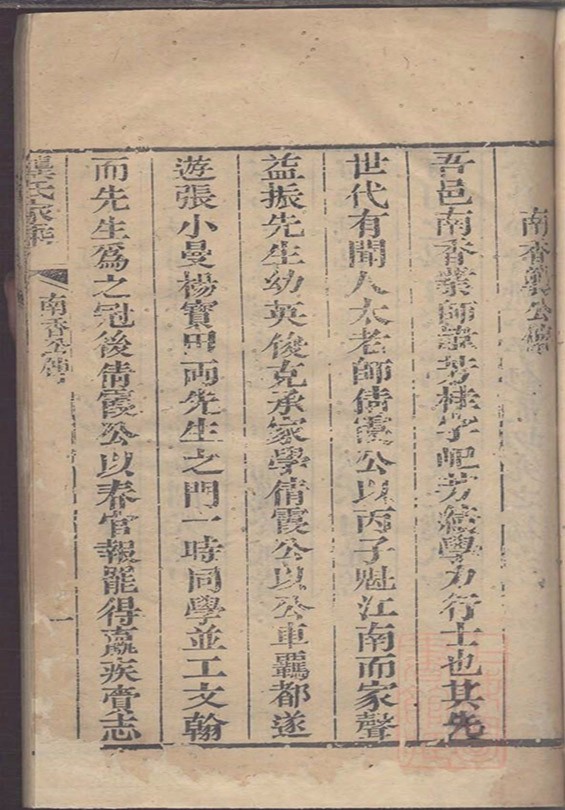 南香龔公傳
吾邑南香業師諱芳桂字屺芳績學力行士也其先
世代有聞人太老師倩霞公以丙子魁江南而家聲
益振先生幼英俊克承家學倩霞公以公車羈都遂
遊張小曼楊寶田兩先生之門一時同學並工文翰
而先生爲之冠後倩霞公以春官報罷得羸疾賫志
龔氏家乘
南香公傳
一